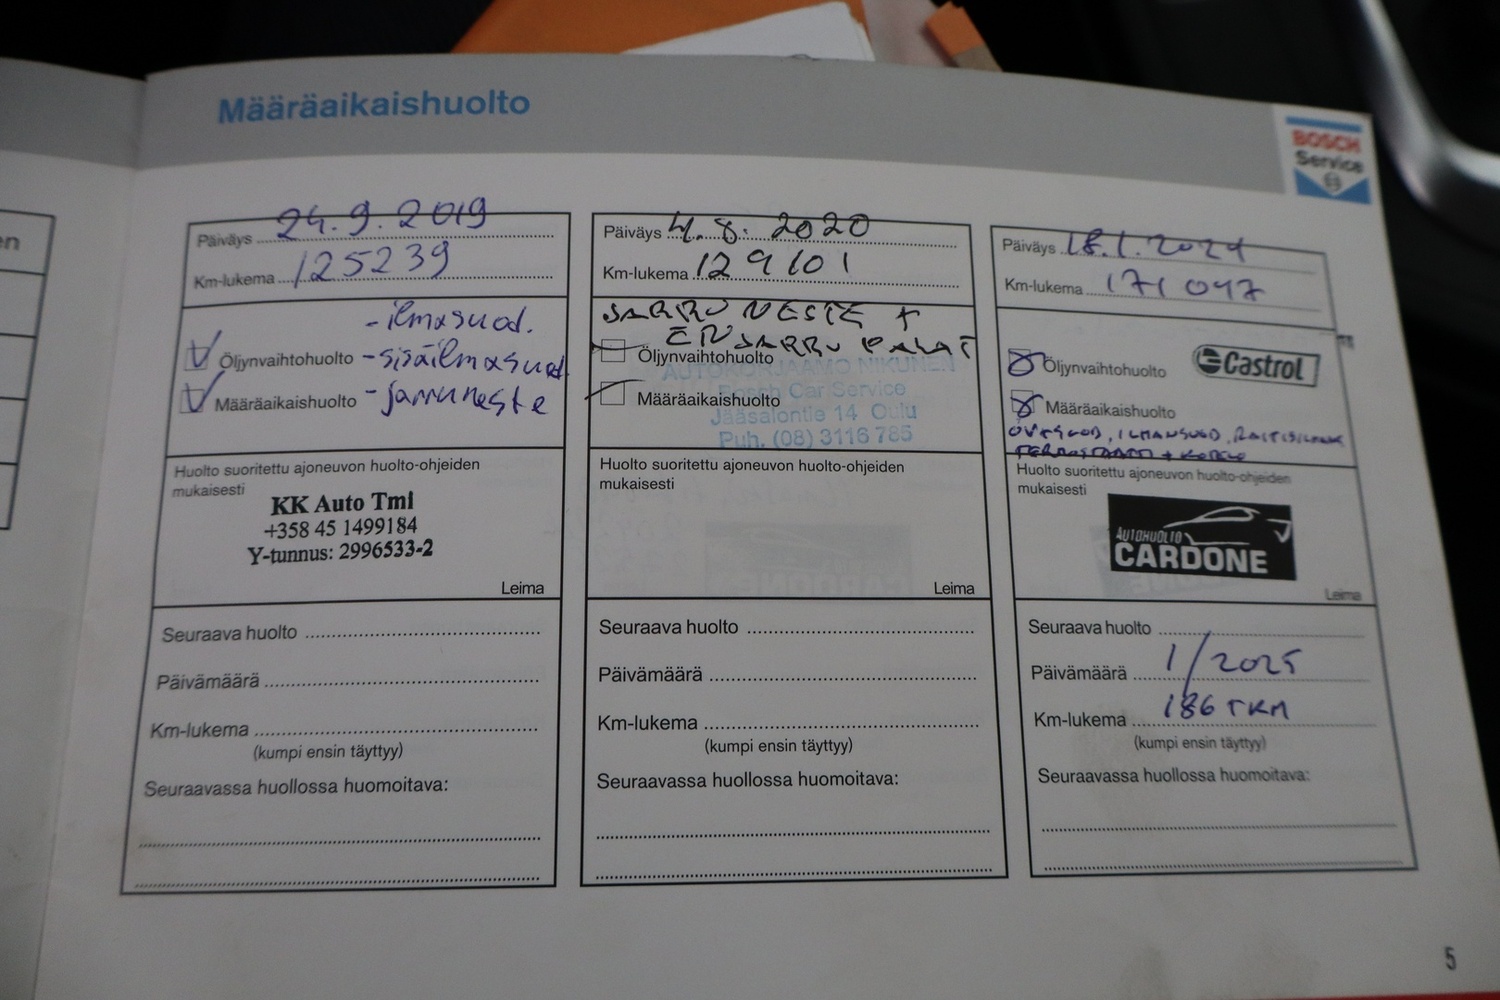 en
Määräaikaishuolto
BOSCH
Service
Päiväys 24.9.2019
Km-lukema 125239
- ilmasuod.
Öljynvaihtohuolto - sisäilmasuod
Määräaikaishuolto - jarruneste
Huolto suoritettu ajoneuvon huolto-ohjeiden
mukaisesti
KK Auto Tmi
+358 45 1499184
Y-tunnus: 2996533-2
Leima
Seuraava huolto
Päivämäärä
Km-lukema
(kumpi ensin täyttyy)
Seuraavassa huollossa huomoitava:
Päiväys 4.8.2020
Km-lukema 129101
JARRU NESTE +
ETUJARRU PALAT
Öljynvaihtohuolto
AUTOKORJAAMO NIKUNEN
Bosch Car Service
Määräaikaishuolto
Jääsalontie 14 Oulu
Puh. (08) 3116 785
Huolto suoritettu ajoneuvon huolto-ohjeiden
mukaisesti
Leima
Seuraava huolto
Päivämäärä
Km-lukema
(kumpi ensin täyttyy)
Seuraavassa huollossa huomoitava:
Päiväys 18.1.2024
Km-lukema 171047
Öljynvaihtohuolto Castrol
Määräaikaishuolto
ILMANSUOD, RAITISILMA
Huolto suoritettu ajoneuvon huolto-ohjeiden
mukaisesti
AUTOHUOLTO
CARDONE
Leima
Seuraava huolto
Päivämäärä 1/2025
Km-lukema 186 TKM
(kumpi ensin täyttyy)
Seuraavassa huollossa huomoitava:
5